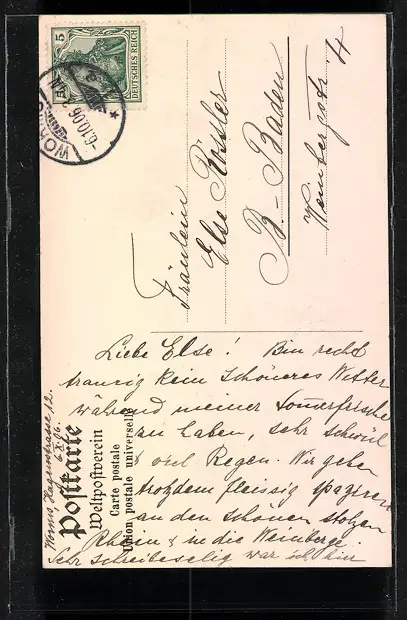 5
DEUTSCHES REICH
WORMS
6.10.06
Fräulein
Else Rössler
B.-Baden
Weinbergstr. 4
Postkarte
Weltpostverein
Carte postale
Union postale universelle
Worms, Hagenstrasse 12.
6.X.06.
Liebe Else! Bin recht
traurig kein schöneres Wetter
während meiner Sommerfrische
zu haben, sehr schwül
& viel Regen. Wir gehen
trotzdem fleissig spaziren
an den schönen stolzen
Rhein & in die Weinberge.
Sehr schreibeselig war ich hin